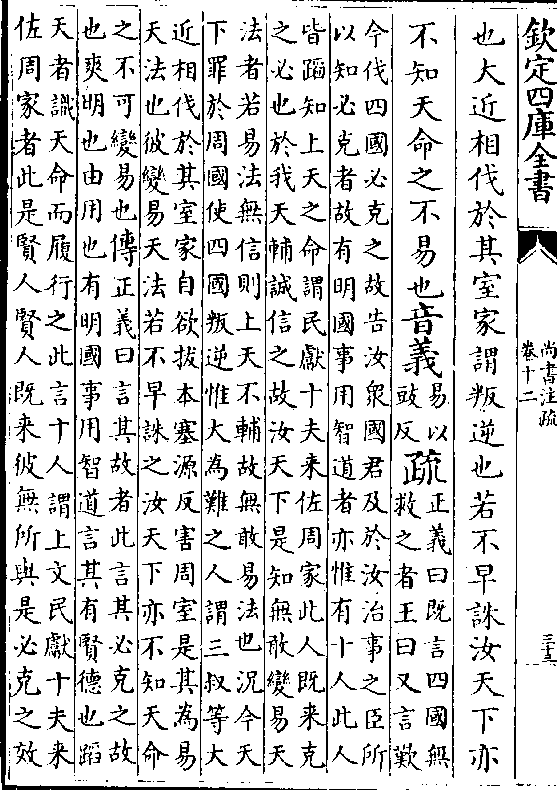 欽定四庫全書
尚書注疏
卷十二
三十三
也大近相伐於其室家謂叛逆也若不早誅汝天下亦
不知天命之不易也音義易以
豉反疏正義曰既言四國無
救之者王曰又言歎
今伐四國必克之故告汝衆國君及於汝治事之臣所
以知必克者故有明國事用智道者亦惟有十人此人
皆蹈知上天之命謂民獻十夫来佐周家此人既来克
之必也於我天輔誠信之故汝天下是知無敢變易天
法者若易法無信則上天不輔故無敢易法也況今天
下罪於周國使四國叛逆惟大為難之人謂三叔等大
近相伐於其室家自欲拔本塞源反害周室是其為易
天法也彼變易天法若不早誅之汝天下亦不知天命
之不可變易也傳正義曰言其故者此言其必克之故
也爽明也由用也有明國事用智道言其有賢德也蹈
天者識天命而履行之此言十人謂上文民獻十夫来
佐周家者此是賢人賢人既来彼無所與是必克之效